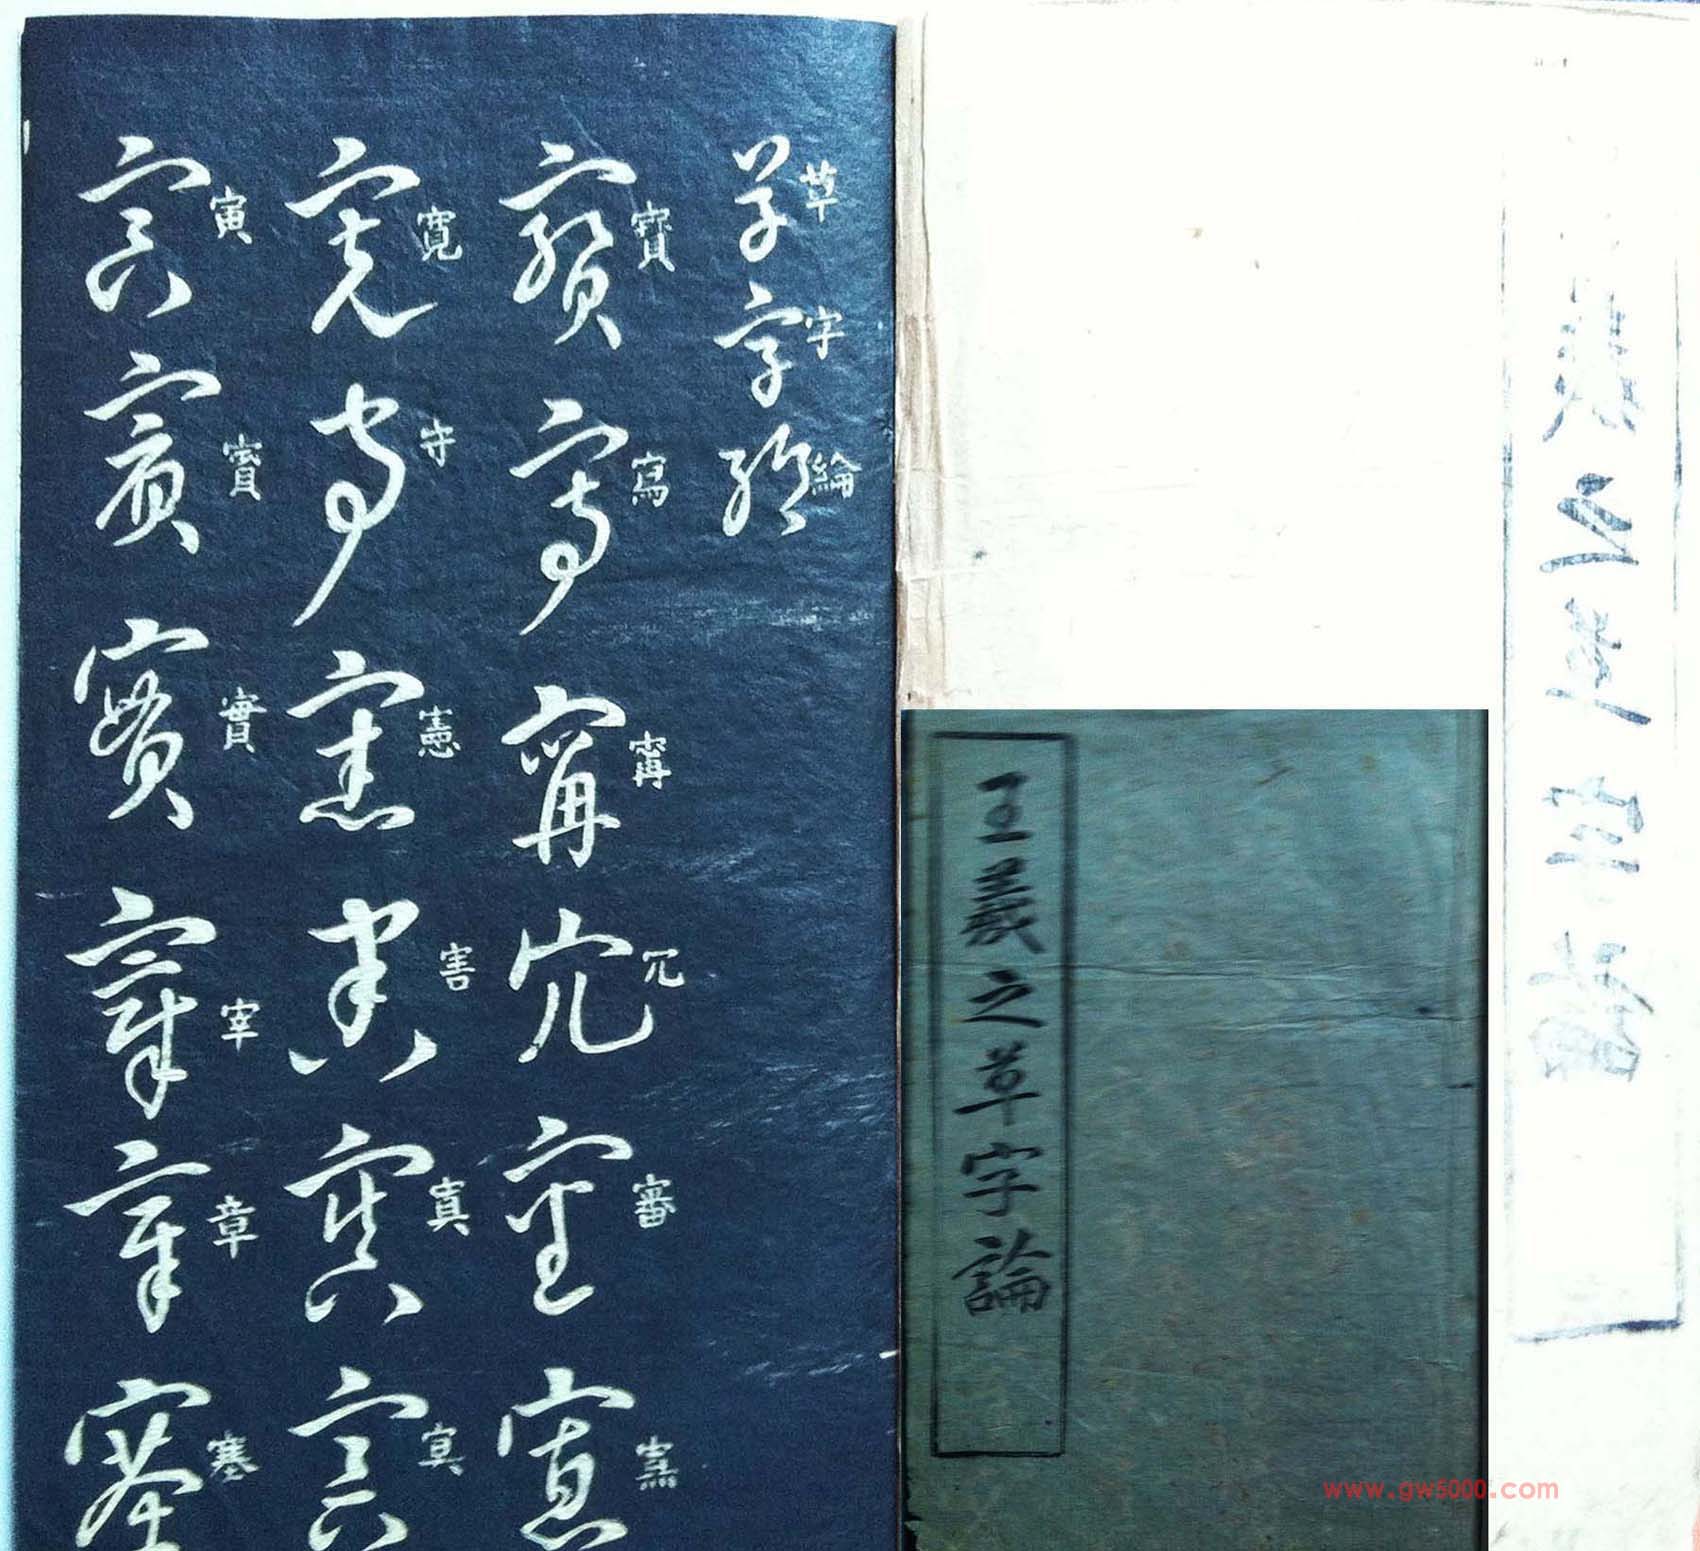 草字綸
草字綸
寶寫寗冗審
寶寫寗冗審
寬守憲害寘寘
寬守憲害真寘
寅賓實宰章塞
寅賓實宰章塞
王羲之草字論
羲之草字論
www.gw5000.com